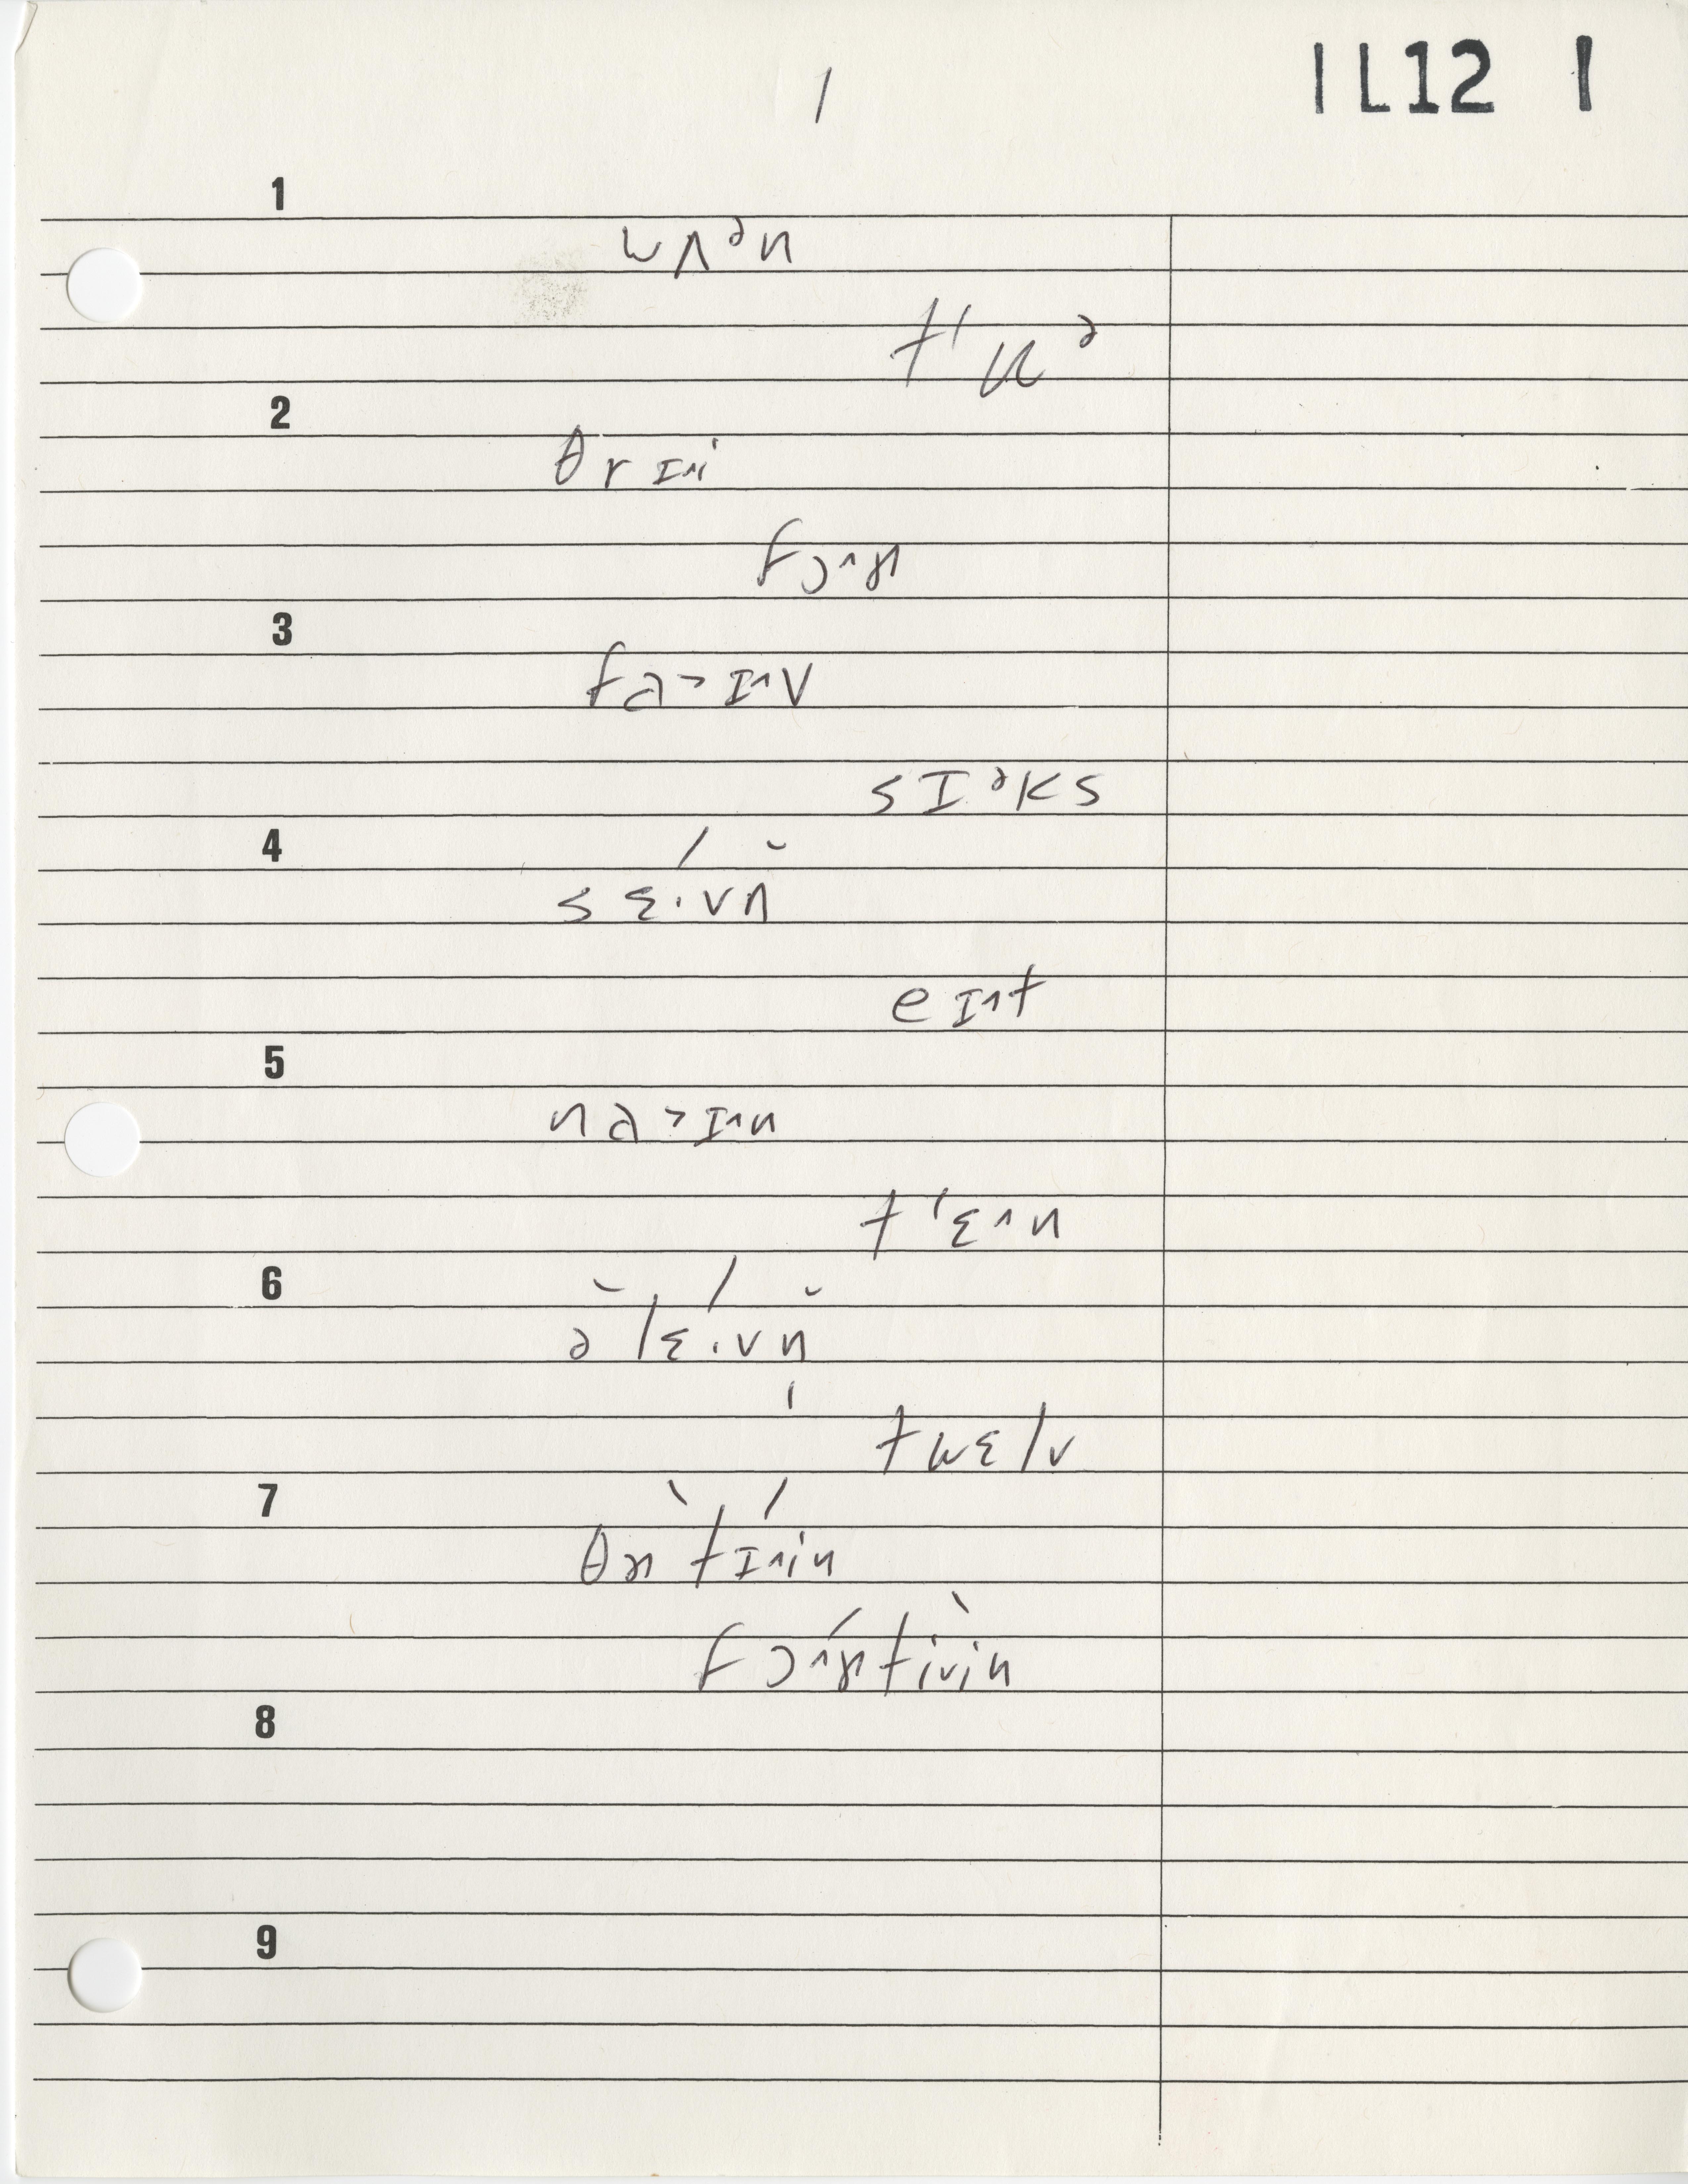 1
IL12 1
1
wʌᵊn
tʻuᵊ
2
θrɪ^i
3
fɔ^ɚ
fa>ɪ^v
sɪᵊks
4
sɛ·vn
eɪ^t
5
na>ɪ^n
tʻɛ^n
6
əlɛ·vn
twɛlv
7
θɚtɪ^in
fɔ^ɚtivin
8
9